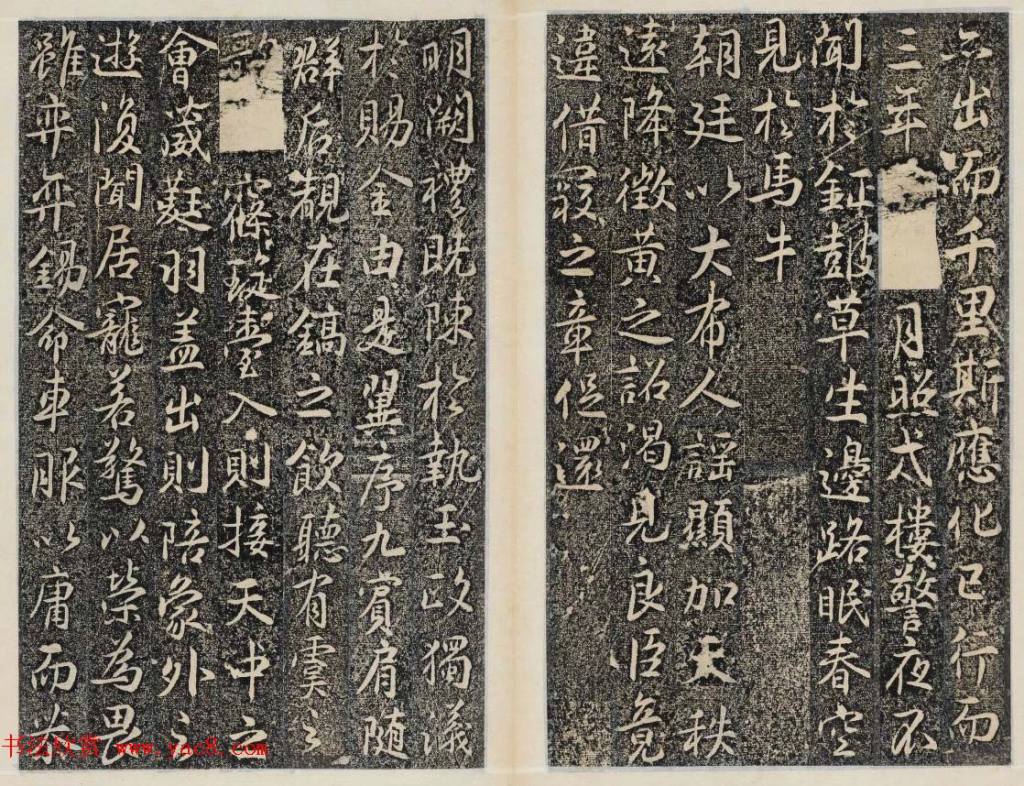 不出而千里斯應化已行而
三年
月照戍樓警夜不
聞於鉦鼓草生邊路眠春空
見於馬牛
朝廷以大布人謡顯加天秩
遠降徵黄之詔渴見良臣竟
違借寇之章促還
明闕禮既陳於執玉政獨議
於賜金由是翼序九賓肩随
群后覲在鎬之飲聽有虞之
歌
入則接天中之
會葳蕤羽盖出則陪象外之
遊復聞居寵若驚以榮為畏
雖弈弈錫命車服以庸而
书法欣赏 www.yac8.com